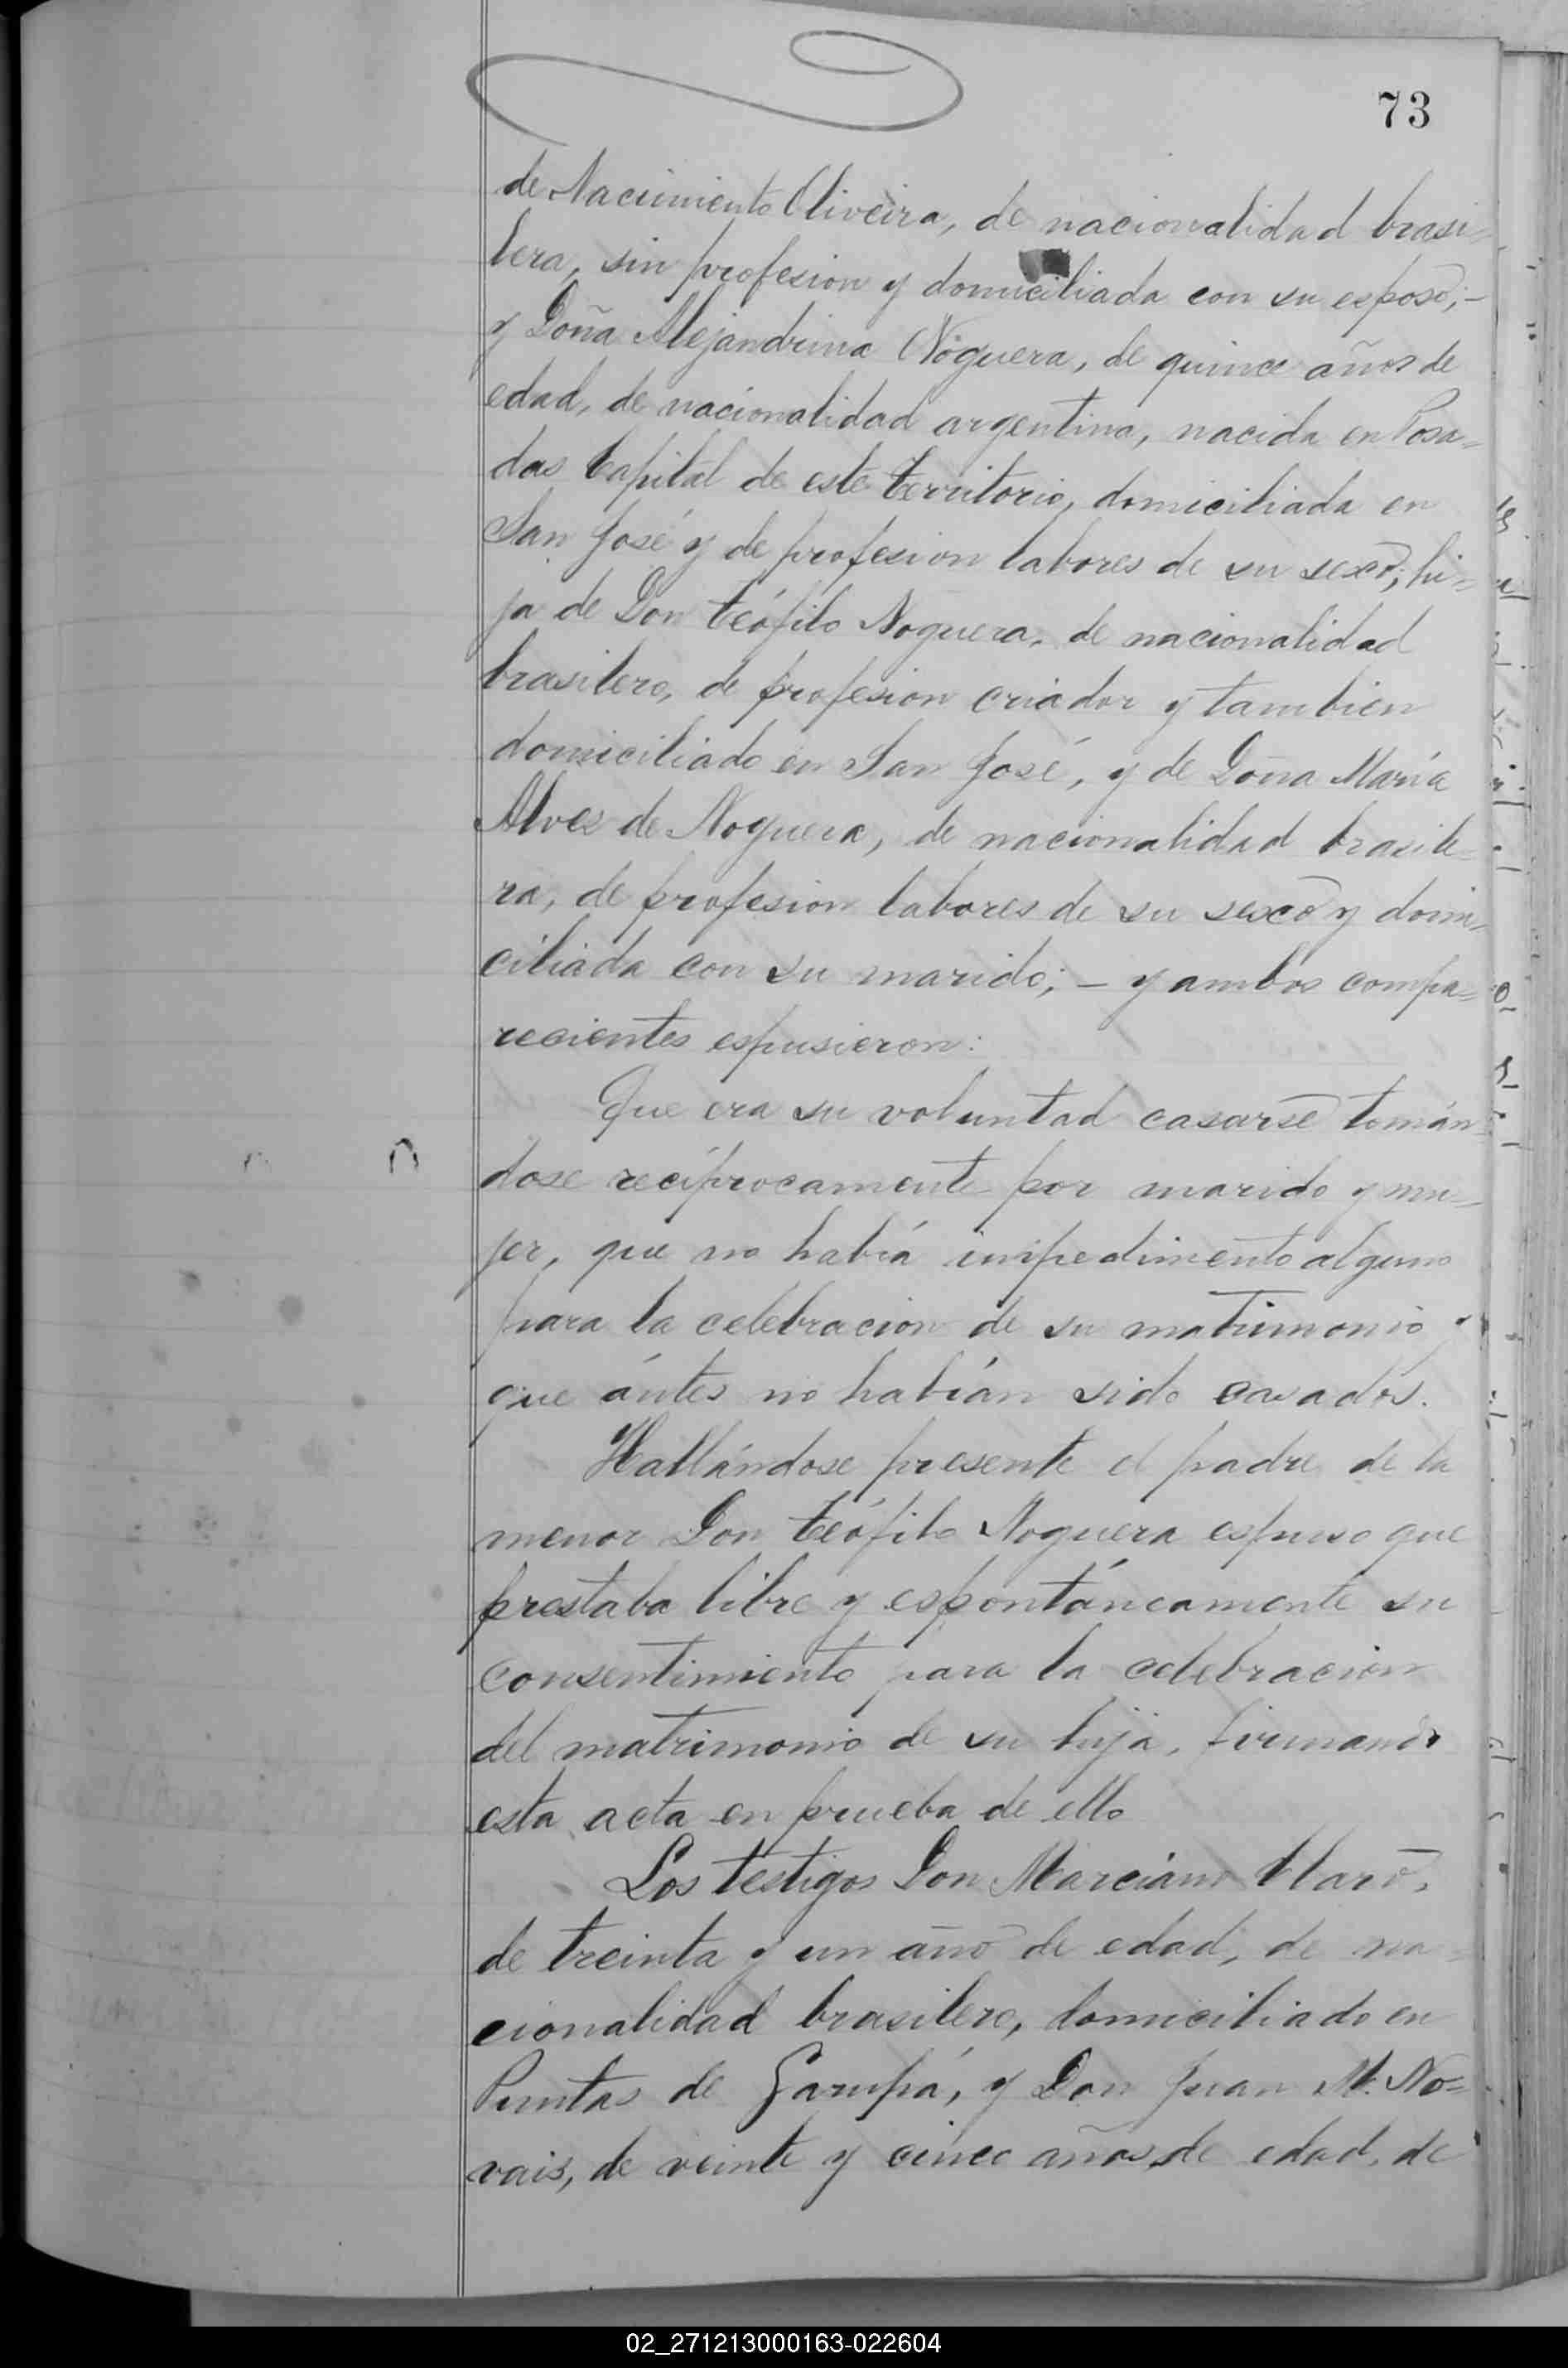 73
de Nacimiento Oliveira, de nacionalidad brasi=
lera, sin profesion y domiciliada con su esposo;-
y Doña Alejandrina Noguera, de quince años de
edad, de nacionalidad argentina, nacida en Posa=
das Capital de este Territorio, domiciliada en
San José y de profesion labores de su sexo; hi=
ja de Don Teófilo Noguera, de nacionalidad
brasilero, de profesion criador y tambien
domiciliado en San José, y de Doña María
Alves de Noguera, de nacionalidad brasile=
ra, de profesion labores de su sexo y domi=
ciliada con su marido; - y ambos compa=
recientes espusieron:
Que era su voluntad casarse tomán=
dose recíprocamente por marido y mu=
jer, que no había impedimento alguno
para la celebracion de su matrimonio y
que ántes no habían sido casados.
Hallándose presente el padre de la
menor Don Teófilo Noguera espuso que
prestaba libre y espontáneamente su
consentimiento para la celebracion
del matrimonio de su hija, firmando
esta acta en prueba de ello
Los testigos Don Marciano Claro,
de treinta y un año de edad, de na=
cionalidad brasilero, domiciliado en
Puntas de Garupá, y Don Juan M. No=
vais, de veinte y cinco años de edad, de
02_271213000163-022604